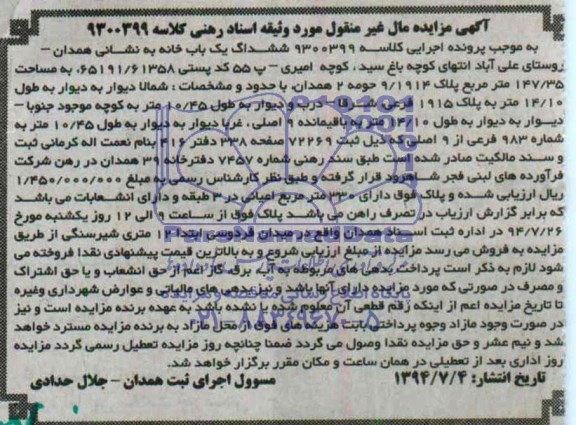 آگهی مزایده مال غیر منقول مورد وثیقه اسناد رهنی کلاسه ۹۳۰۰۳۹۹
به موجب پرونده اجرایی کلاسه ۹۳۰۰۳۹۹ ششدانگ یک باب خانه به نشانی همدان –
روستای علی آباد انتهای کوچه باغ سید، کوچه امیری – پ ۵۵ کد پستی ۶۵۱۹۱/۶۱۳۵۸، به مساحت
۱۴۷/۳۵ متر مربع پلاک ۹/۱۹۱۴ حومه ۲ همدان، با حدود و مشخصات : شمالا دیوار به دیوار به طول
۱۴/۱۰ متر به پلاک ۱۹۱۵ فرعی شرقا – درب و دیوار به طول ۱۰/۴۵ متر به کوچه موجود جنوبا –
دیوار به دیوار به طول ۱۴/۱۰ متر به باقیمانده ۹ اصلی، غربا دیوار به دیوار به طول ۱۰/۴۵ متر به
شماره ۹۸۳ فرعی از ۹ اصلی که ذیل ثبت ۷۲۲۶۹ صفحه ۳۳۸ دفتر ۴۱۶ بنام نعمت اله کرمانی ثبت
و سند مالکیت صادر شده است طبق سند رهنی شماره ۷۴۵۷ دفترخانه ۳۹ همدان در رهن شرکت
فرآورده های لبنی فجر شاهرود قرار گرفته و طبق نظر کارشناس رسمی به مبلغ ۱/۴۵۰/۰۰۰/۰۰۰
ریال ارزیابی شده و پلاک فوق دارای ۳۳۰ متر مربع اعیانی در ۳ طبقه و دارای انشعابات می باشد
که برابر گزارش ارزیاب در تصرف راهن می باشد پلاک فوق از ساعت ۹ الی ۱۲ روز یکشنبه مورخ
۹۴/۷/۲۶ در اداره ثبت اسناد همدان واقع در میدان فردوسی ابتدا ۱۲ متری شیرسنگی از طریق
مزایده به فروش می رسد مزایده از مبلغ ارزیابی شروع و به بالاترین قیمت پیشنهادی نقدا فروخته می
شود لازم به ذکر است پرداخت بدهی های مربوطه به آب، برق، گاز اعم از حق انشعاب و یا حق اشتراک
و مصرف در صورتی که مورد مزایده دارای آنها باشد و نیز بدهی های مالیاتی و عوارض شهرداری وغیره
تا تاریخ مزایده اعم از اینکه رقم قطعی آن معلوم شده یا نشده باشد به عهده برنده مزایده است و نیز
در صورت وجود مازاد وجوه پرداختی بابت هزینه های فوق از محل مازاد به برنده مزایده مسترد خواهد
شد و نیم عشر و حق مزایده نقدا وصول می گردد ضمنا چنانچه روز مزایده تعطیل رسمی گردد مزایده
روز اداری بعد از تعطیلی در همان ساعت و مکان مقرر برگزار خواهد شد.
تاریخ انتشار: ۱۳۹۴/۷/۴ مسوول اجرای ثبت همدان – جلال حدادی